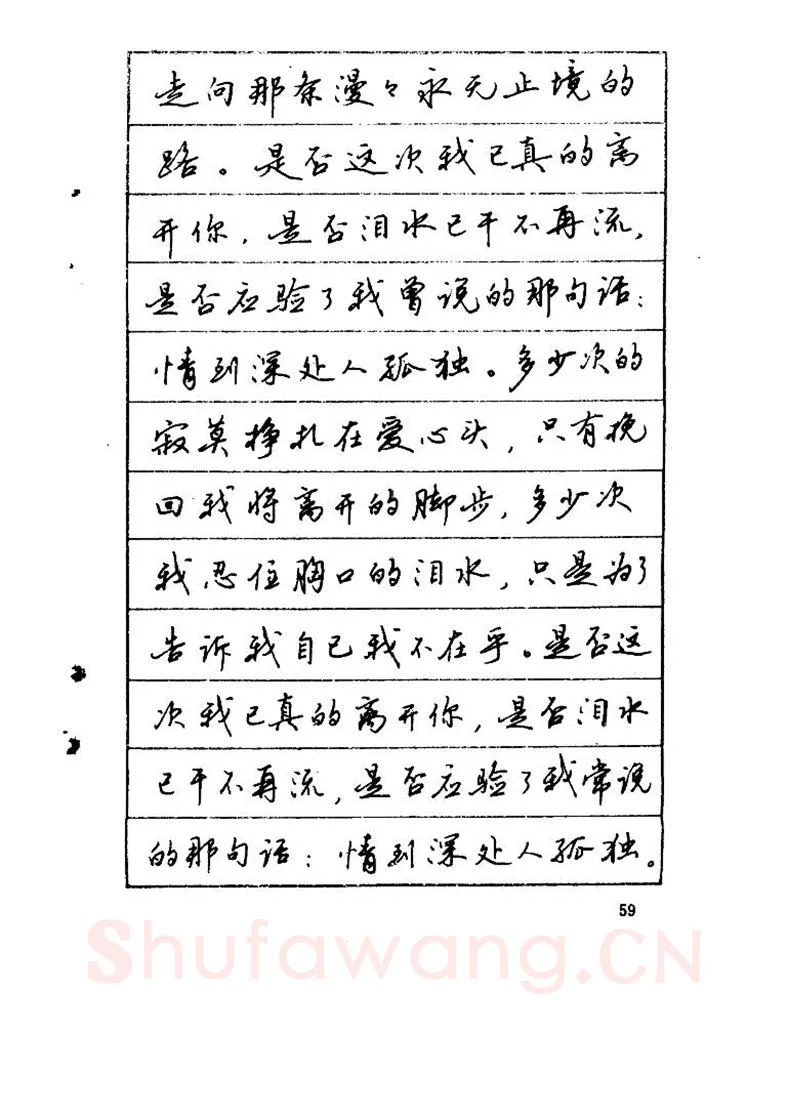 走向那条漫々永无止境的
路。是否这次我已真的离
开你，是否泪水已干不再流，
是否应验了我曾说的那句话：
情到深处人孤独。多少次的
寂莫挣扎在爱心头，只有挽
回我将离开的脚步，多少次
我忍住胸口的泪水，只是为了
告诉我自己我不在乎。是否这
次我已真的离开你，是否泪水
已干不再流，是否应验了我常说
的那句话：情到深处人孤独。
59
Shufawang.CN